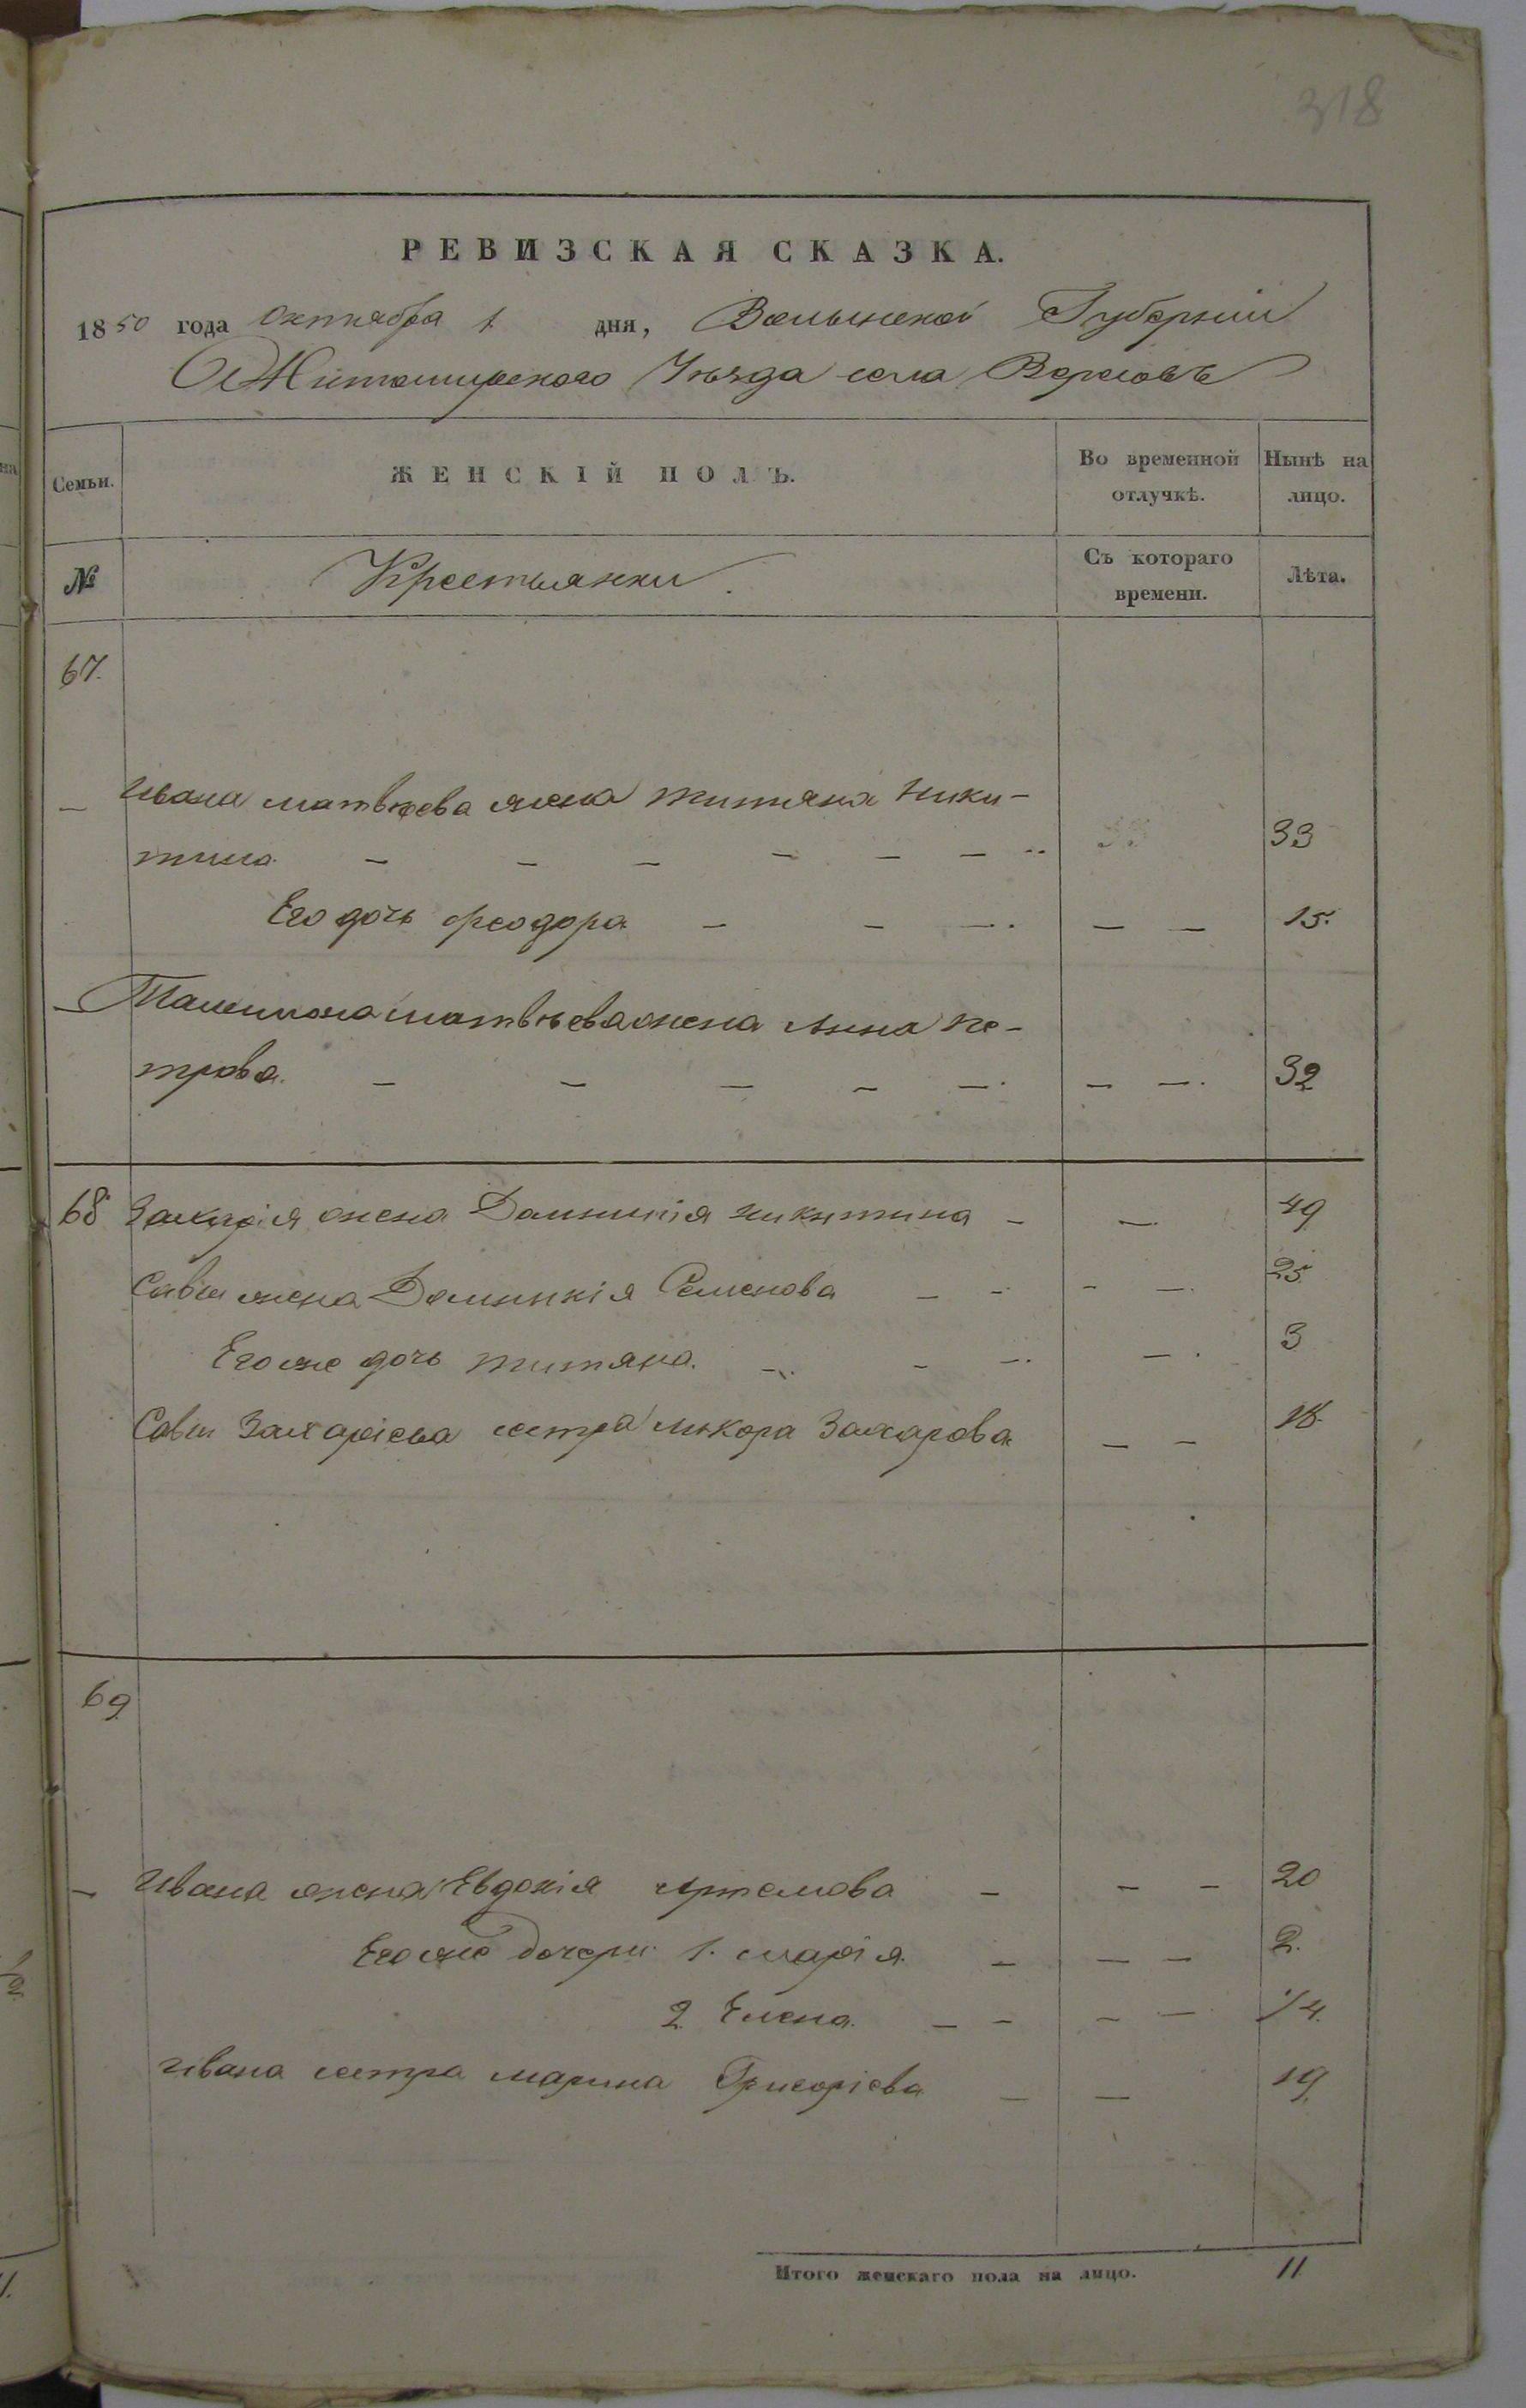 318
РЕВИЗСКАЯ СКАЗКА.
1850 года Октября 1 дня, Волынской Губерніи
Житомирскаго Уѣзда села Ворсовъ
Семьи. ЖЕНСКІЙ ПОЛЪ. Во временной отлучкѣ. Нынѣ на лицо.
№ Крестьянки. Съ котораго времени. Лѣта.
67.
Ивана матвѣева жена титяна Ники-
тина - - - - - - 33
Его дочь феодора - - - - - 15.
матвѣева жена Анна пе-
трова. - - - - - - - 32
68 Захарія жена Домникія никитина - - 49
Савы жена Домникія Семенова - - - - 25
Его же дочь титяна. - - - - 3
Савы Захаріева сестра Захарова - - 18
69
Ивана жена Евдокія Артемова - - - 20
Его же дочери 1. марія - - - 2.
2 Елена. - - - - 1/4.
Ивана сестра марина Григоріева - - 19
Итого женскаго пола на лицо. 11